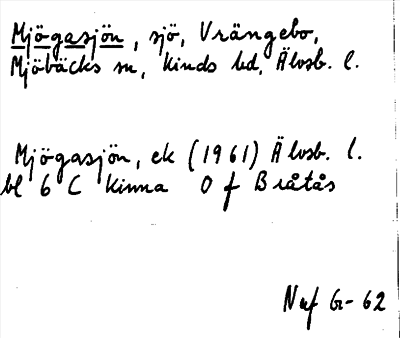 Mjögasjön, sjö, Vrängebo,
Mjöbäcks sn, Kinds hd, Älvsb. l.
Mjögasjön, ek (1961) Älvsb. l.
bl 6 C Kinna O f Bråtås
Naf Gr-62